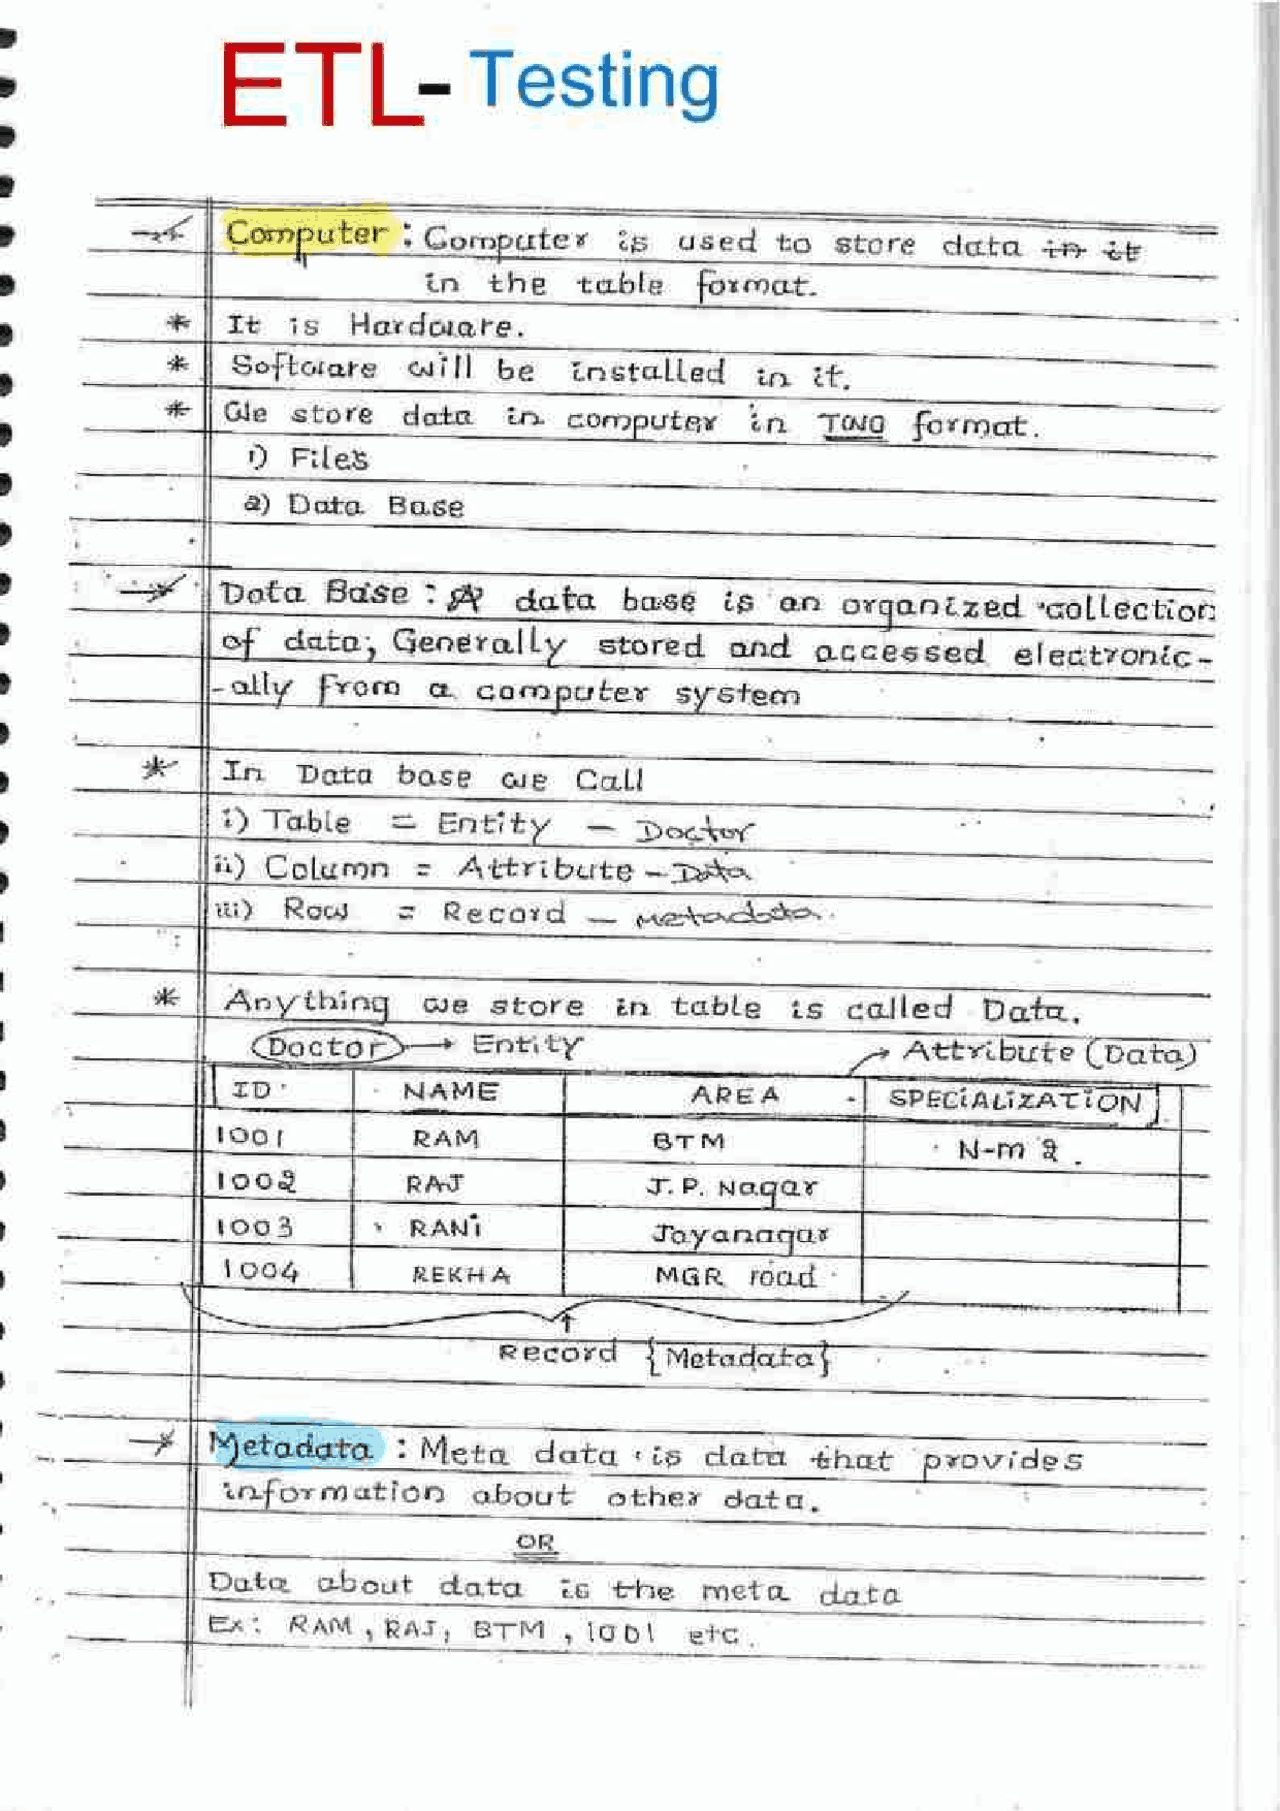 ETL- Testing
Computer : Computer is used to store data in it
in the table format.
* It is Hardware.
* Software will be installed in it.
* We store data in computer in TWO format.
1) Files
2) Data Base
Data Base : A data base is an organized collection
of data; Generally stored and accessed electronic-
-ally from a computer system
* In Data base we Call
i) Table = Entity - Doctor
ii) Column = Attribute - Data
iii) Row = Record - metadata.
* Anything we store in table is called Data.
Doctor → Entity → Attribute (Data)
ID NAME AREA SPECiALiZATiON
1001 RAM BTM N-m 2.
1002 RAJ J.P. Nagar
1003 RANi Jayanagar
1004 REKHA MGR road
Record {Metadata}
Metadata : Meta data is data that provides
information about other data.
OR
Data about data is the meta data
Ex: RAM, RAJ, BTM, 1001 etc.